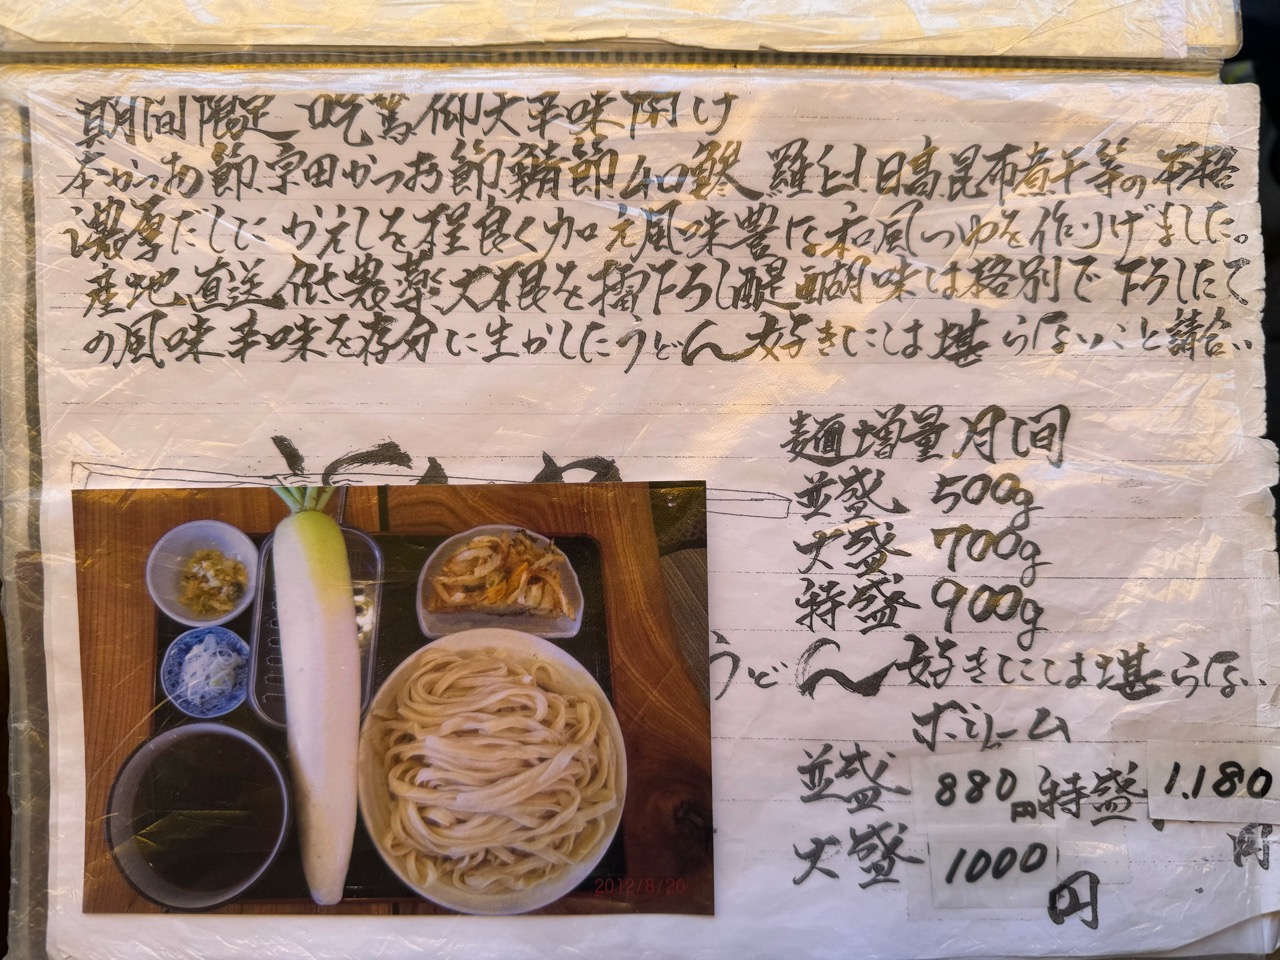 期間限定 吃驚仰大辛味開け
本かつお節、宗田かつお節、鯖節、 羅臼、日高昆布煮干等の本格
濃厚だしにかえしを程良く加え風味豊な和風つゆを作りげました。
産地直送低農薬大根を擂下ろし醍醐味は格別で下ろしたて
の風味辛味を存分に生かしたうどん好きには堪らないこと請合い
麺増量月間
並盛 500g
大盛 700g
特盛 900g
うどん好きには堪らない
ボリーム
並盛 880円 特盛 1.180円
大盛 1000円
2012/8/20